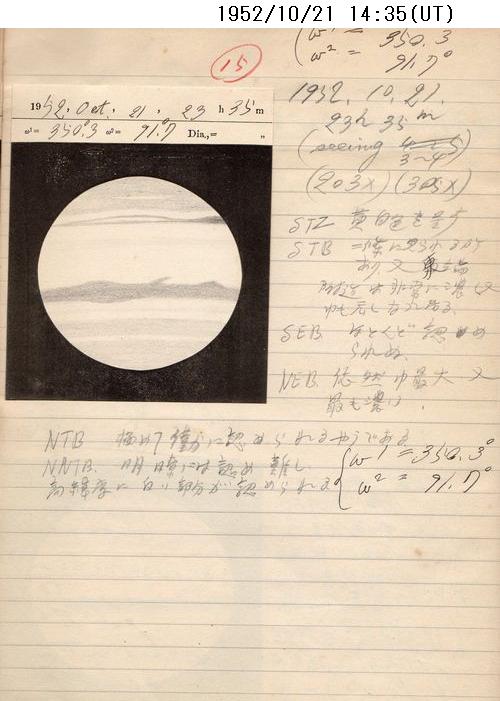 1952/10/21 14:35(UT)
ω¹ = 350.3
ω² = 91.7°
15
1952. Oct. 21, 23 h 35 m
ω¹= 350°.3 ω²= 91.°7 Dia.,= „
1952. 10. 21.
23h 35m
(seeing 4~5)
3~4
(203x) (305x)
STZ 黄白色を呈す
STB 二条に
あり 又
は非常に濃く又
巾も
SEB ほとんど認め
られぬ.
NEB 依然巾最大 又
最も濃い.
NTB 極めて僅かに認められるやうである
NNTB. 明瞭には認め難し
高緯度に白い部分が認められる
ω¹ = 350.3°
ω² = 91.7°